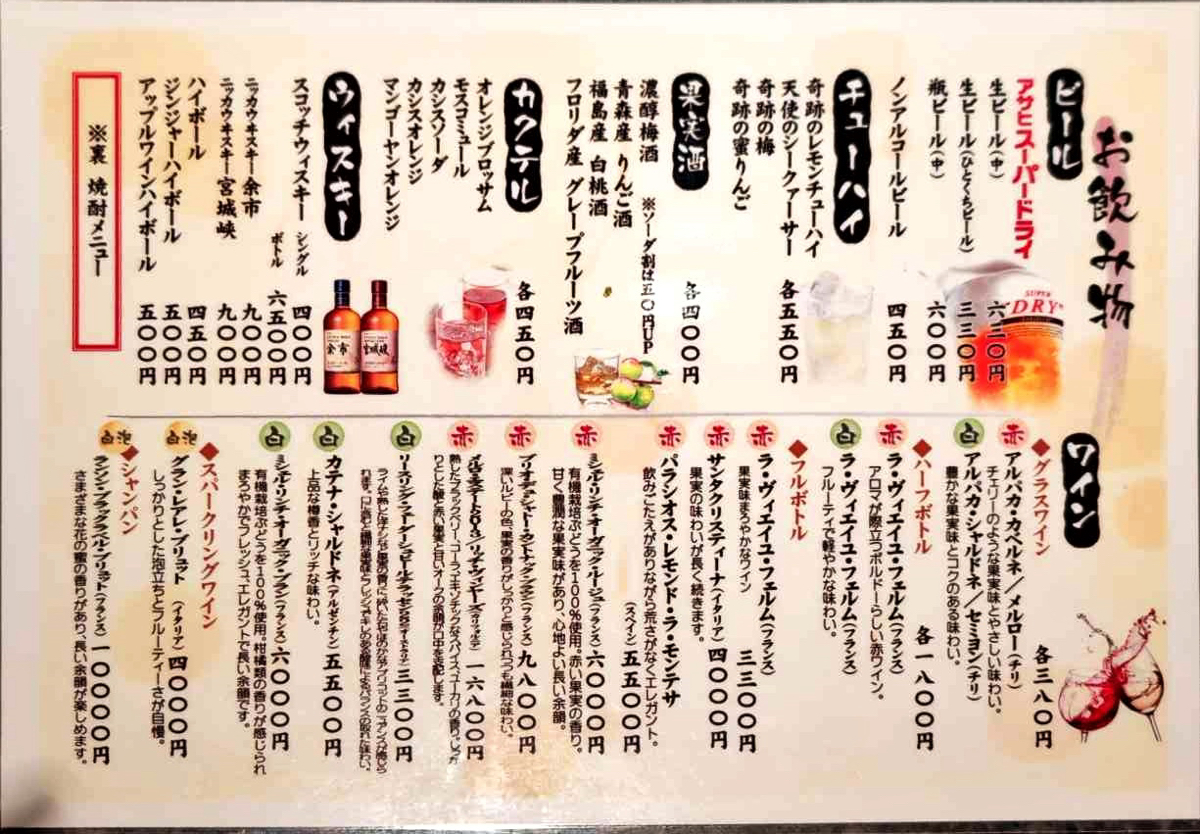 お飲み物
ビール
アサヒスーパードライ
生ビール(中) 六三〇円
生ビール(ひとくちビール) 三三〇円
瓶ビール(中) 六〇〇円
ノンアルコールビール 四五〇円
チューハイ
各五五〇円
奇跡のレモンチューハイ
天使のシークァーサー
奇跡の梅
奇跡の蜜りんご
果実酒
各四〇〇円
※ソーダ割は五〇円UP
濃醇梅酒
青森産 りんご酒
福島産 白桃酒
フロリダ産 グレープフルーツ酒
カクテル
各四五〇円
オレンジブロッサム
モスコミュール
カシスソーダ
カシスオレンジ
マンゴーヤンオレンジ
ウィスキー
スコッチウィスキー シングル 四〇〇円
ボトル 六五〇〇円
ニッカウヰスキー余市 九〇〇円
ニッカウヰスキー宮城峡 九〇〇円
ハイボール 四五〇円
ジンジャーハイボール 五〇〇円
アップルワインハイボール 五〇〇円
※裏 焼酎メニュー
SUPER
"DRY"
余市
宮城峡
ワイン
◆グラスワイン 各三八〇円
赤 アルパカ・カベルネ/メルロー(チリ)
チェリーのような果実味とやさしい味わい。
白 アルパカ・シャルドネ/セミヨン(チリ)
豊かな果実味とコクのある味わい。
◆ハーフボトル 各一八〇〇円
赤 ラ・ヴィエイユ・フェルム(フランス)
アロマが際立つボルドーらしい赤ワイン。
白 ラ・ヴィエイユ・フェルム(フランス)
フルーティで軽やかな味わい。
◆フルボトル
赤 ラ・ヴィエイユ・フェルム(フランス) 三三〇〇円
果実味まろやかなワイン
赤 サンタクリスティーナ(イタリア) 四〇〇〇円
果実の味わいが長く続きます。
赤 パラシオス・レモンド・ラ・モンテサ
(スペイン) 五五〇〇円
飲みごたえがありながら荒さがなくエレガント。
赤 ミシェル・リンチオーガニック・ルージュ(フランス) 六〇〇〇円
有機栽培ぶどうを100%使用。赤い果実の香り。
甘く豊潤な果実味があり、心地よい長い余韻。
赤 (フランス) 九八〇〇円
深いルビーの色、果実の香りがしっかりと感じられつつも繊細な味わい。
赤 一六八〇〇円
白 三三〇〇円
白 カテナ・シャルドネ(アルゼンチン) 五五〇〇円
上品な樽香とリッチな味わい。
白 ミシェル・リンチオーガニック・ブラン(フランス) 六〇〇〇円
有機栽培ぶどうを100%使用。柑橘類の香りが感じられ
まろやかでフレッシュ、エレガントで長い余韻です。
◆スパークリングワイン
白泡 グラン・レアレ・ブリュット (イタリア) 四〇〇〇円
しっかりとした泡立ちとフルーティーさが自慢。
◆シャンパン
白泡 ランソン・ブラックラベル・ブリュット(フランス) 一〇〇〇〇円
さまざまな花の蜜の香りがあり、長い余韻が楽しめます。